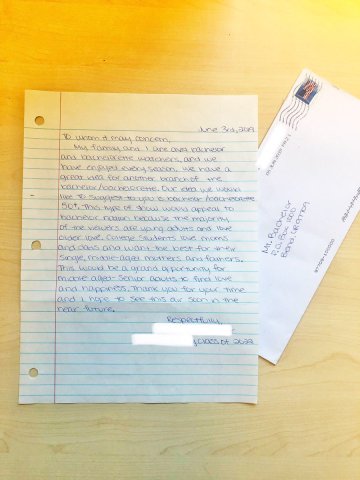 June 3rd, 2019
To whom it may concern,
My family and I are avid bachelor
and bachelorette watchers, and we
have enjoyed every season. We have a
great idea for another branch of the
bachelor/bachelorette. Our idea we would
like to suggest to you is bachelor/bachelorette
50+. This type of show would appeal to
bachelor nation because the majority
of the viewers are young adults and love
older love. College students love moms
and dads and want the best for their
single, middle-aged mothers and fathers.
This would be a grand opportunity for
middle aged-senior adults to find love
and happiness. Thank you for your time
and I hope to see this air soon in the
near future.
Respectfully,
class of 2023
Mr. Bachelor
P.O. Box